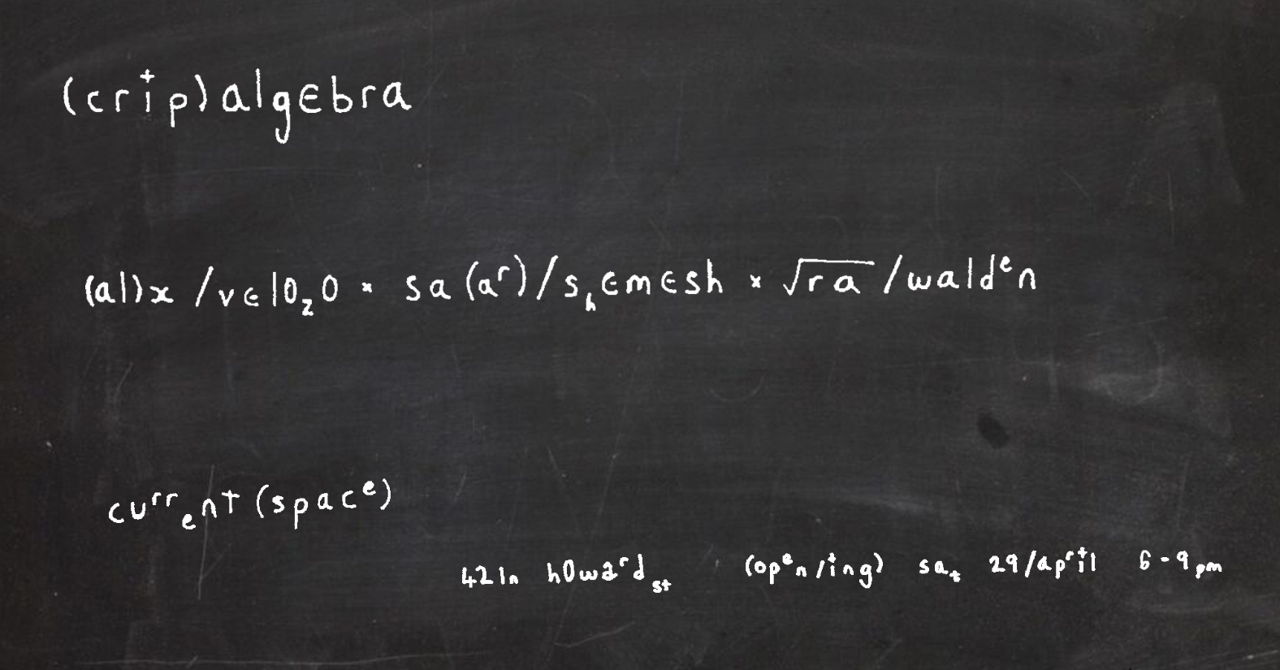 (crip)algebra
(al)x /velo₂o × sa(aʳ)/sₕemesh × √ra /waldᵉn
cuʳʳₑnt(spacᵉ)
421n h0waʳdₛₜ (opᵉn/ing) saₜ 29/apʳil 6-9pm